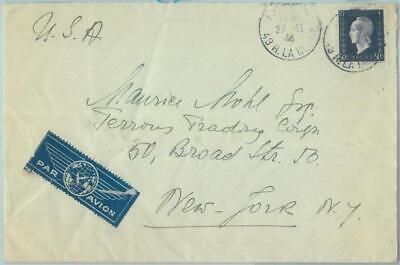 U.S.A
27 - 11
46
43 R. LA BOÉTIE
Maurice Mohl Esq.
Ferrous Trading Corp
50, Broad Str. 50.
PAR AVION
New-York N.Y.